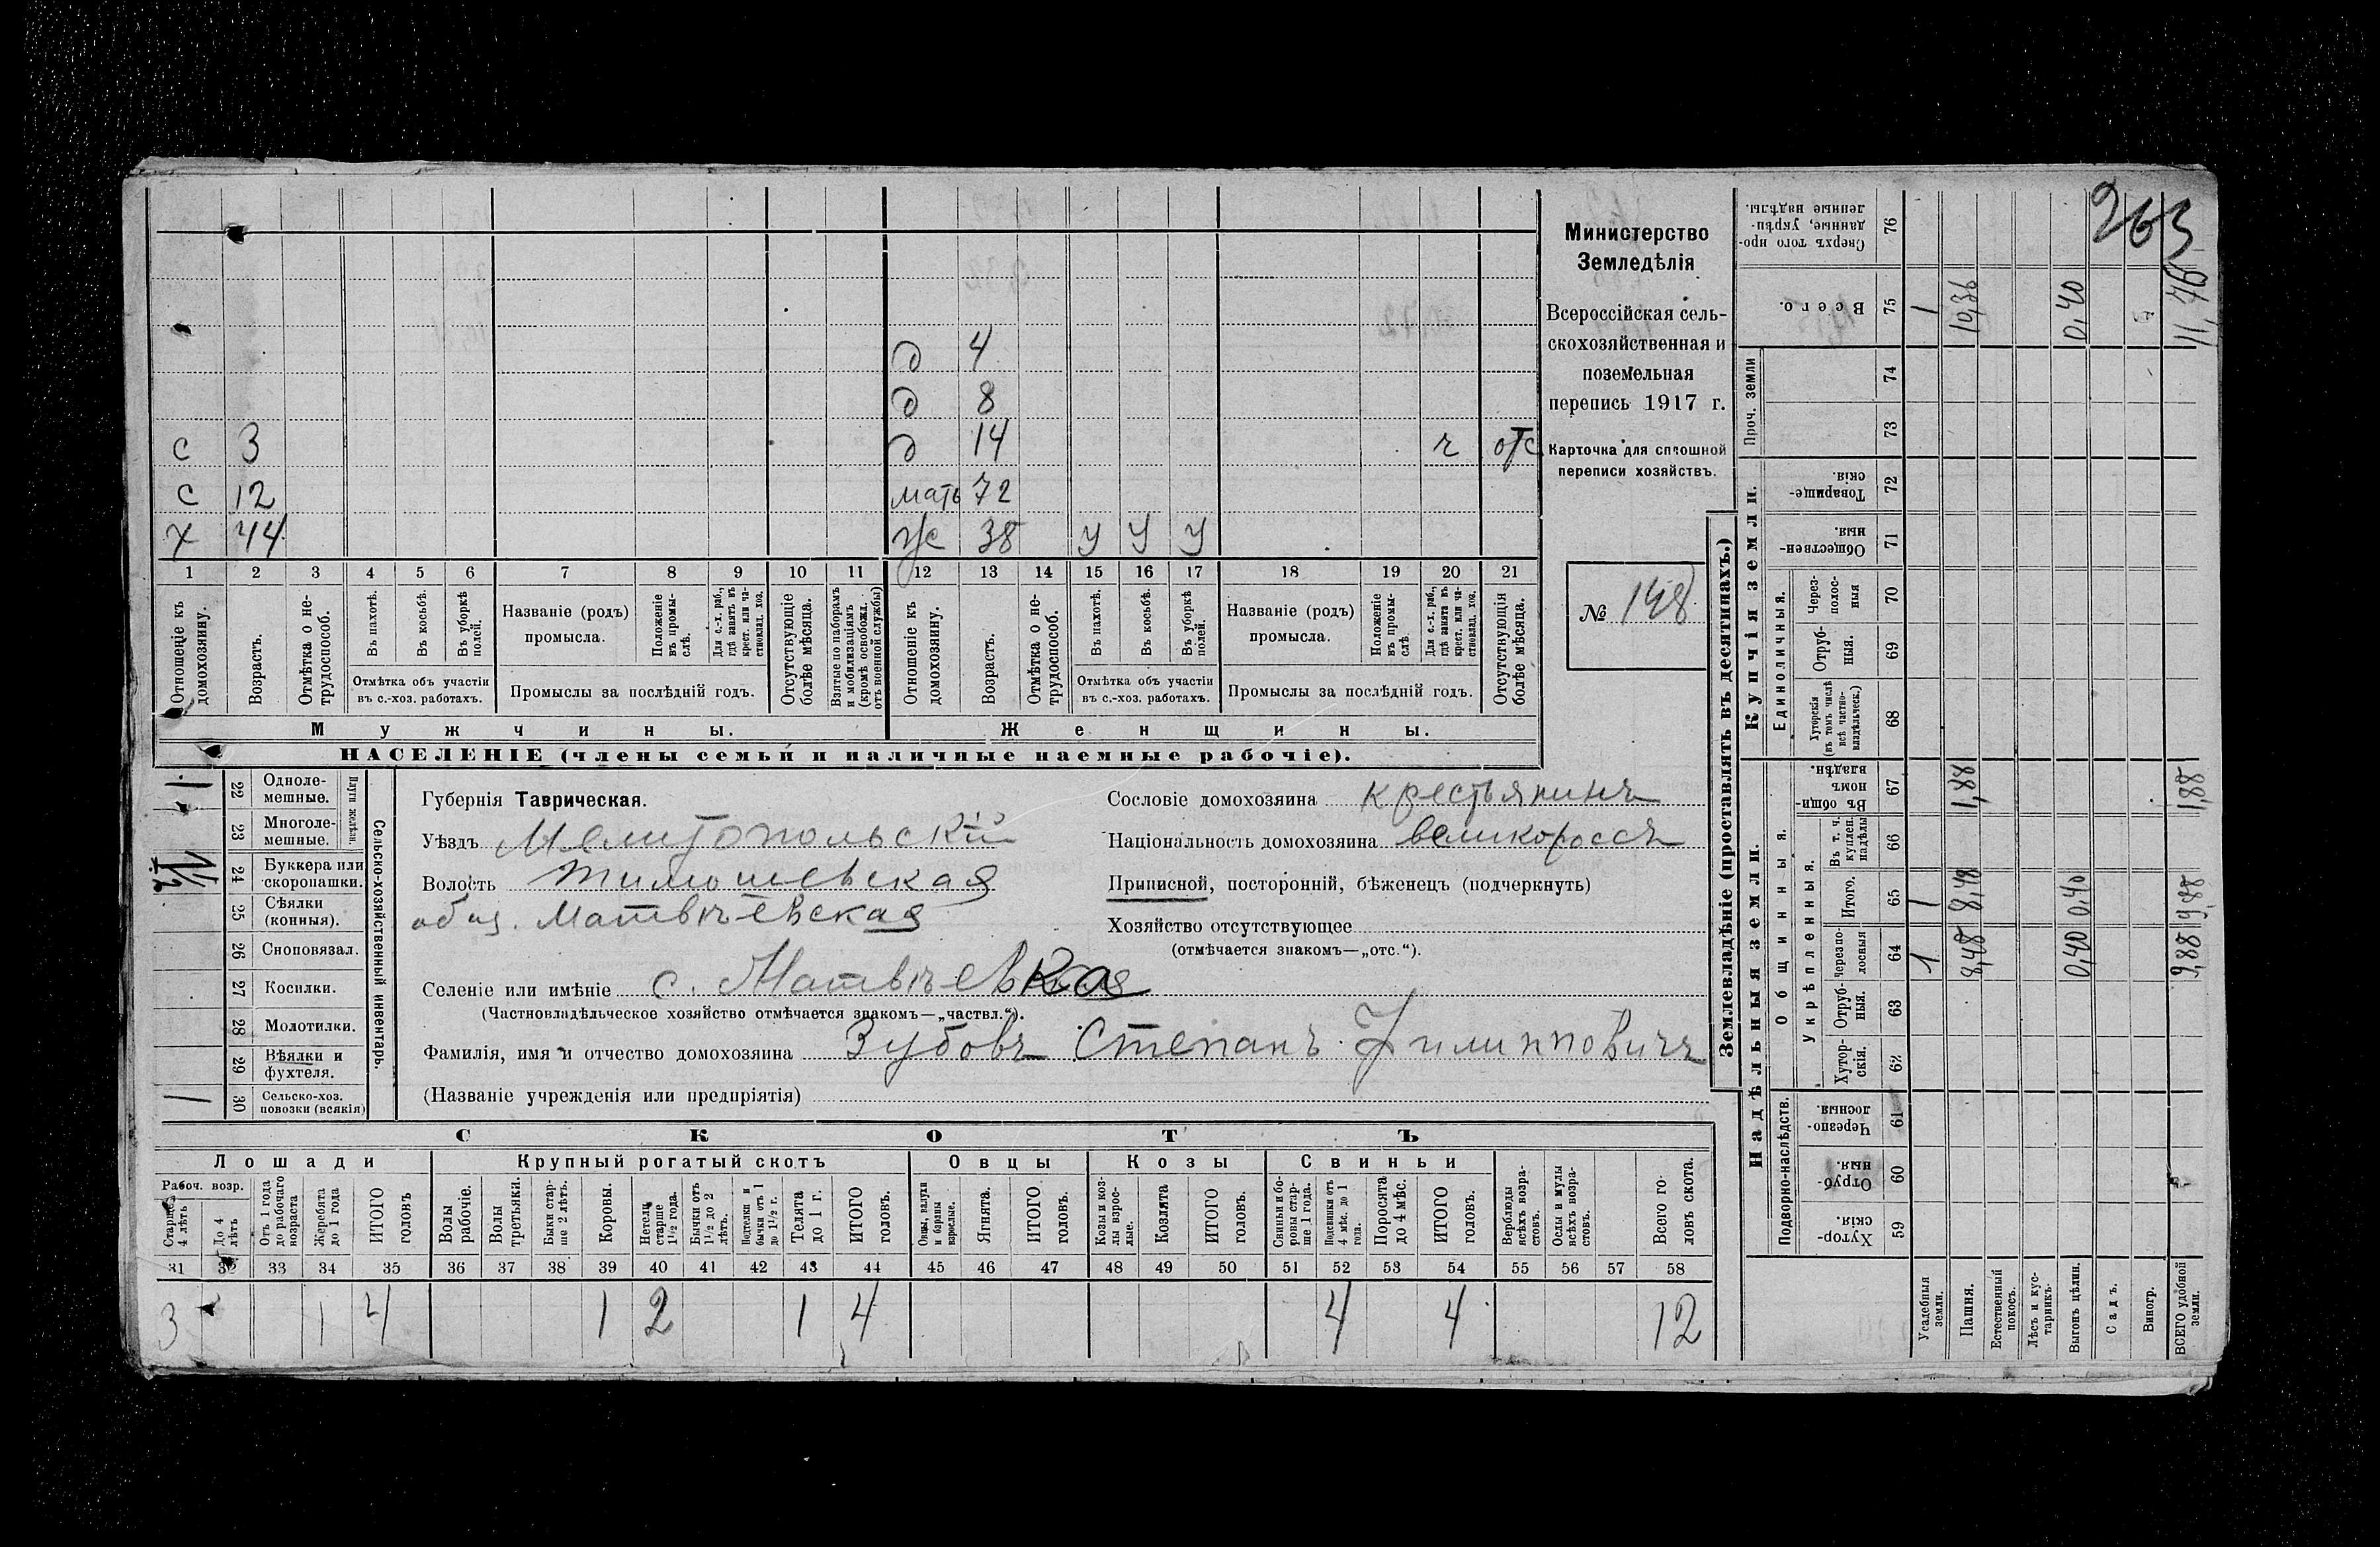 263
Министерство
Земледѣлія
Всероссійская сель-
скохозяйственная и
поземельная
перепись 1917 г.
Карточка для сплошной
переписи хозяйствъ.
№ 148
д 4
д 8
с 3 д 14 г отс
с 12 мать 72
х 44 ж 38 у у у
1 2 3 4 5 6 7 8 9 10 11 12 13 14 15 16 17 18 19 20 21
Отношеніе къ домохозяину.
Возрастъ.
Отмѣтка о не-трудоспособ.
Въ пахотѣ.
Въ косьбѣ.
Въ уборкѣ полей.
Отмѣтка объ участіи въ с.-хоз. работахъ.
Названіе (родъ) промысла.
Положеніе въ промы-слѣ.
Для с.-х. раб., гдѣ занятъ въ крест. или ча-стновлад. хоз.
Промыслы за послѣдній годъ.
Отсутствующіе болѣе мѣсяца.
Взятые по наборамъ и мобилизаціямъ (кромѣ освобожд. отъ военной службы)
Отношеніе къ домохозяину.
Возрастъ.
Отмѣтка о не-трудоспособ.
Въ пахотѣ.
Въ косьбѣ.
Въ уборкѣ полей.
Отмѣтка объ участіи въ с.-хоз. работахъ.
Названіе (родъ) промысла.
Положеніе въ промы-слѣ.
Для с.-х. раб., гдѣ занята въ крест. или ча-стновлад. хоз.
Промыслы за послѣдній годъ.
Отсутствующія болѣе мѣсяца.
Мужчины. Женщины.
НАСЕЛЕНІЕ (члены семьи и наличные наемные рабочіе).
Сельско-хозяйственный инвентарь.
Плуги желѣзн.
1 22 Одноле-мешные.
23 Многоле-мешные.
24 Буккера или скоропашки.
25 Сѣялки (конныя).
26 Сноповязал.
27 Косилки.
28 Молотилки.
29 Вѣялки и фухтеля.
1 30 Сельско-хоз. повозки (всякія)
Губернія Таврическая.
Уѣздъ Мелитопольскій
Волость Тимошевская
общ. Матвѣевская
Селеніе или имѣніе с. Матвѣевка
(Частновладѣльческое хозяйство отмѣчается знакомъ—„частвл.“).
Фамилія, имя и отчество домохозяина Зубовъ Степанъ Филипповичъ
(Названіе учрежденія или предпріятія)
Сословіе домохозяина крестьянинъ
Національность домохозяина великороссъ
Приписной, посторонній, бѣженецъ (подчеркнуть)
Хозяйство отсутствующее
(отмѣчается знакомъ—„отс.“).
СКОТЪ
Лошади Крупный рогатый скотъ Овцы Козы Свиньи
Рабоч. возр.
Старше 4 лѣтъ
До 4 лѣтъ
Отъ 1 года до рабочаго возраста
Жеребята до 1 года
ИТОГО головъ
Волы рабочіе.
Волы третьяки.
Быки стар-ше 2 лѣтъ.
Коровы.
Нетели старше 1½ года.
Бычки отъ 1½ до 2 лѣтъ.
Подтелки и бычки отъ 1 до 1½ г.
Телята до 1 г.
ИТОГО головъ.
Овцы, валухи и бараны взрослые.
Ягнята.
ИТОГО головъ.
Козы и коз-лы взрос-лые.
Козлята
ИТОГО головъ.
Свиньи и бо-ровы стар-ше 1 года.
Подсвинки отъ 4 мѣс. до 1 года.
Поросята до 4 мѣс.
ИТОГО головъ.
Верблюды всѣхъ возра-стовъ.
Ослы и мулы всѣхъ возра-стовъ.
Всего го-ловъ скота.
31 32 33 34 35 36 37 38 39 40 41 42 43 44 45 46 47 48 49 50 51 52 53 54 55 56 57 58
3 1 4 1 2 1 4 4 4 12
Землевладѣніе (проставлять въ десятинахъ.)
Надѣльныя земли. Купчія земли. Проч. земли
Подворно-наслѣдств. Общинныя. Единоличныя.
Укрѣпленныя.
Хутор-скія. 59
Отруб-ныя. 60
Черезпо-лосныя. 61
Хутор-скія. 62
Отруб-ныя. 63
Черезпо-лосныя 64
Итого. 65
Въ т. ч. куплен. надѣлы 66
Въ общи-номъ владѣн. 67
Хуторскія (въ томъ числѣ всѣ частно-владѣльческ.) 68
Отруб-ныя. 69
Через-полос-ныя 70
Обществен-ныя. 71
Товарище-скія. 72
73
74
Всего. 75
Сверхъ того про-данные, укрѣп-ленные надѣлы. 76
Усадебныя земли. 1 1 1
Пашня. 8,48 8,48 1,88 10,36
Естественный покосъ.
Лѣсъ и кус-тарникъ.
Выгонъ цѣлин. 0,40 0,40 0,40
Садъ.
Виногр.
ВСЕГО удобной земли. 9,88 9,88 1,88 11,76